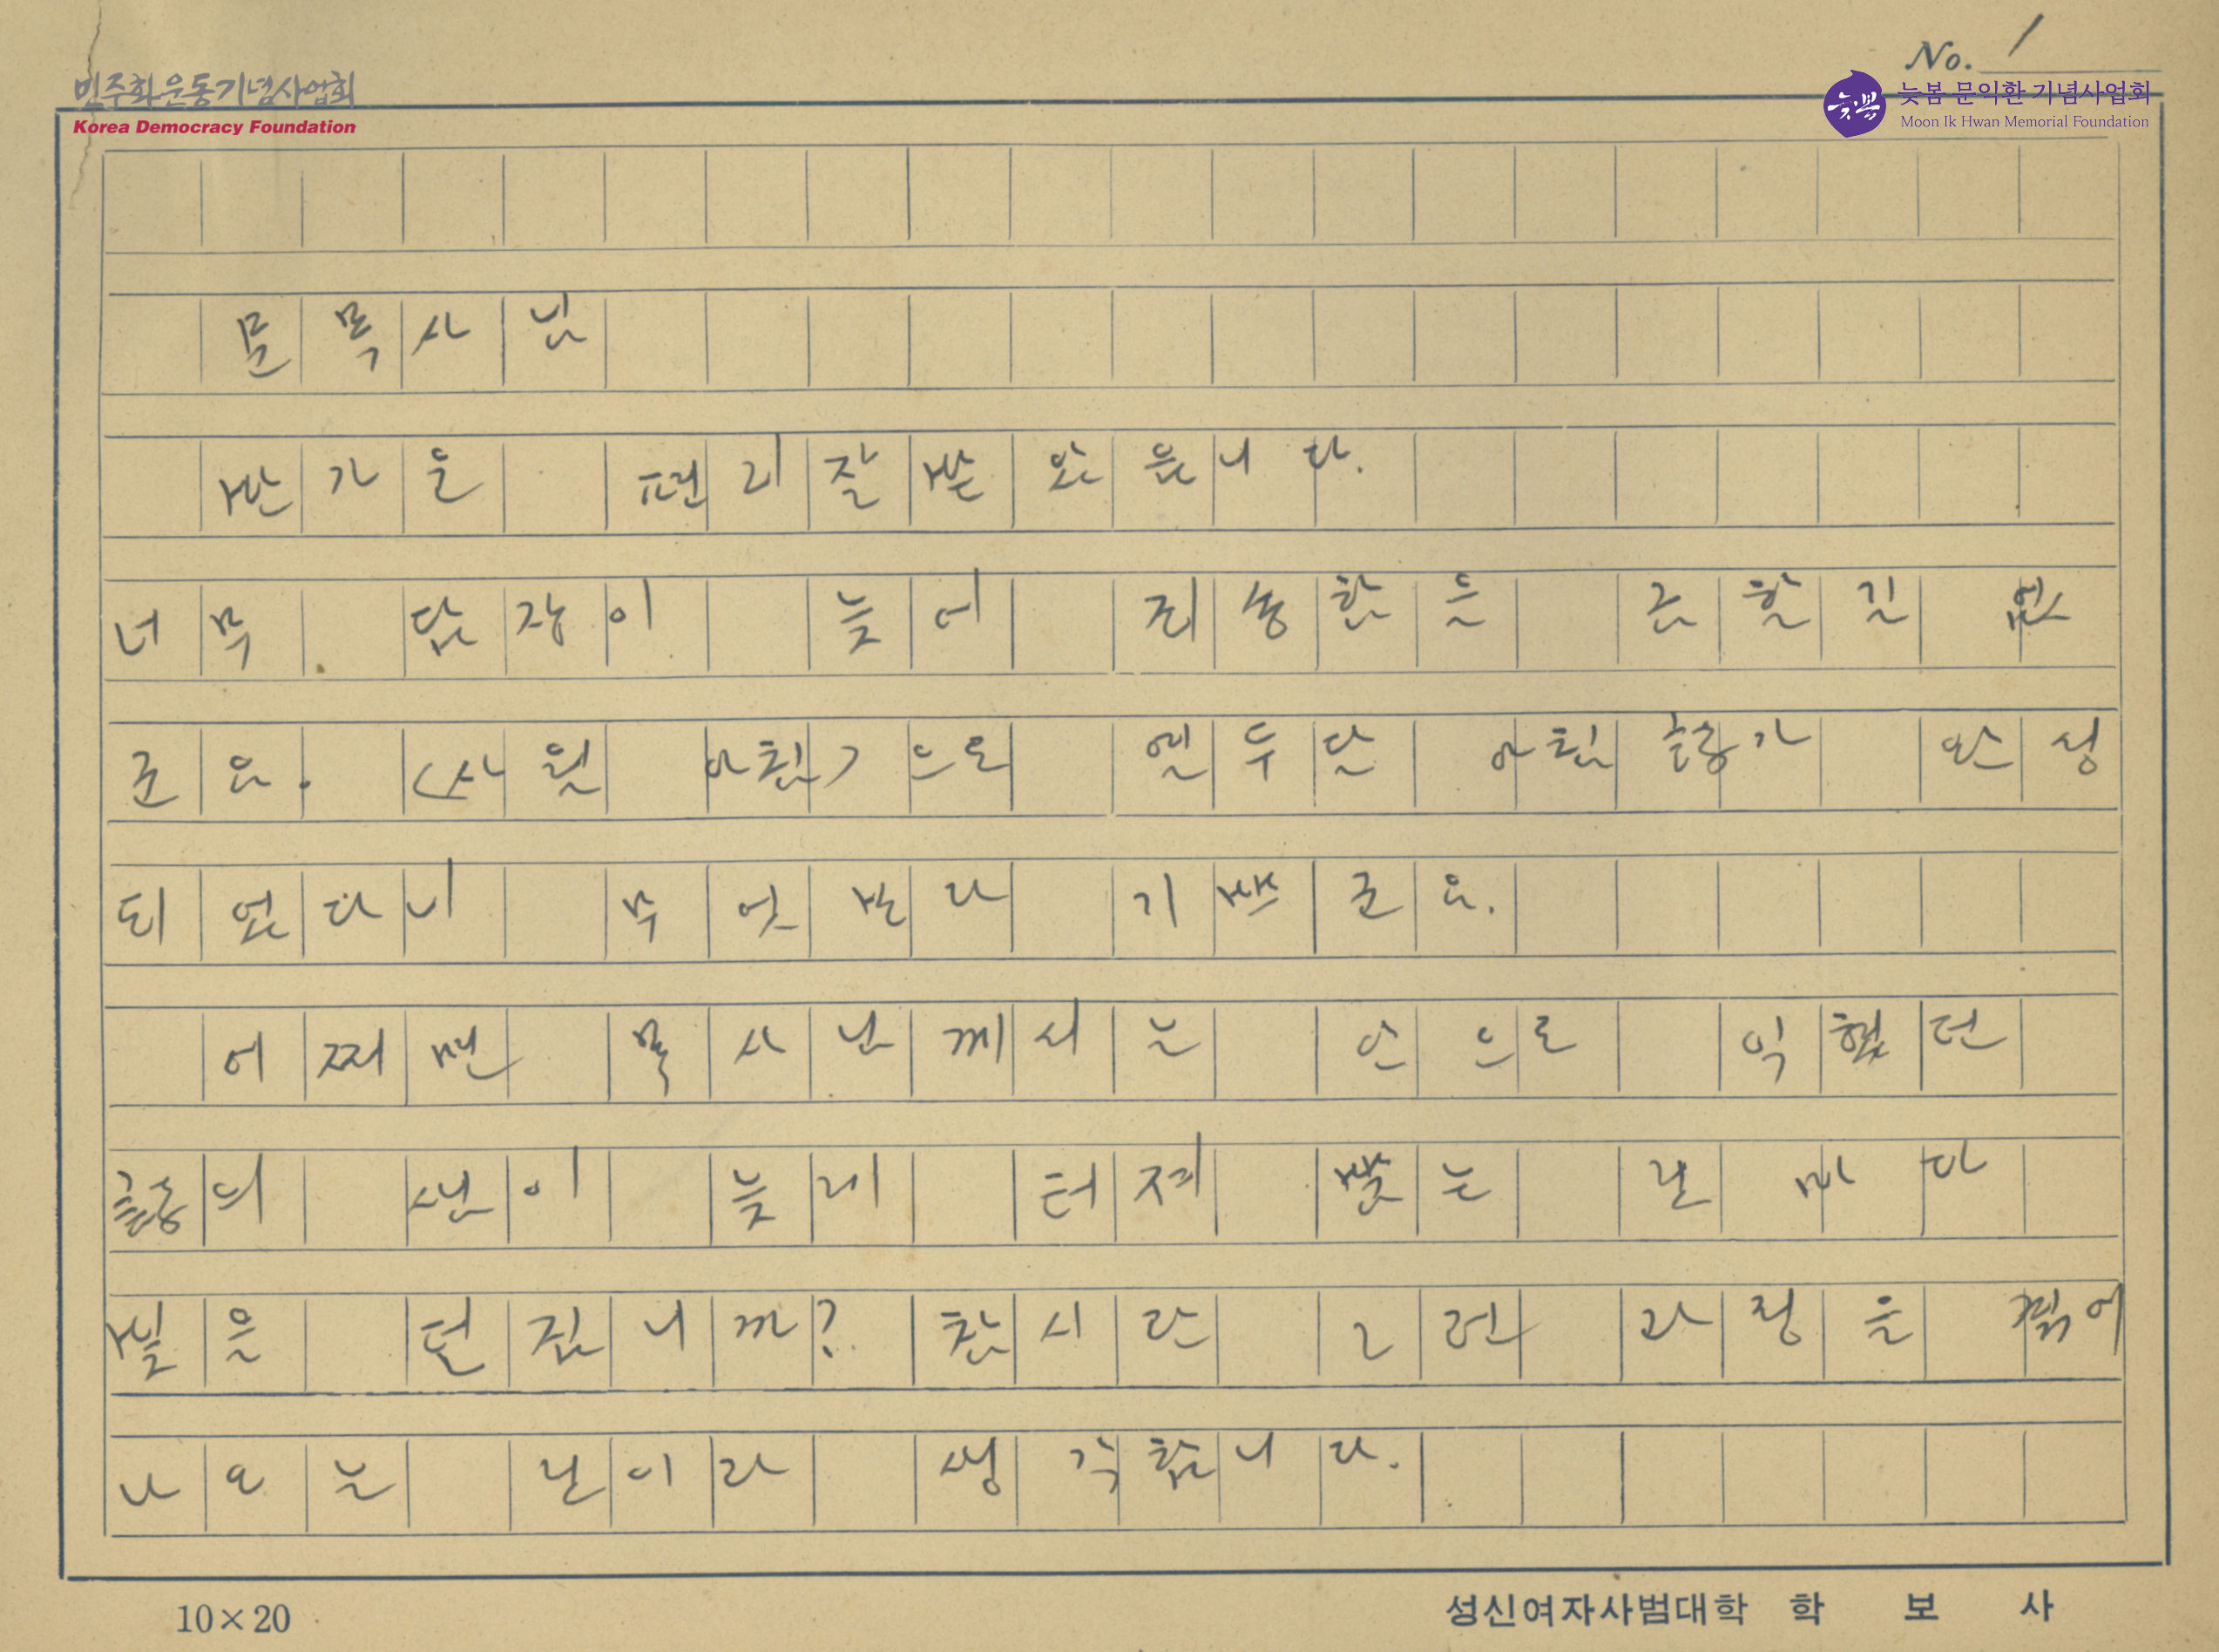 No. 1
민주화운동기념사업회
Korea Democracy Foundation
늦봄 문익환 기념사업회
Moon Ik Hwan Memorial Foundation
문목사님
반가운 편리잘받았읍니다.
너무 답장이 늦어 죄송함은 금할길 없
군요. (사월 아침)으로 열두달 아침 가 완성
되었다니 무엇보다 기쁘군요.
어쩌면 목사님께서는 안으로 익혔던
의 샘이 늦게 터져 받는 날마다
빛을 던집니까? 참시란 그런 과정을 겪어
나오는 날이라 생각합니다.
10×20
성신여자사범대학 학 보 사